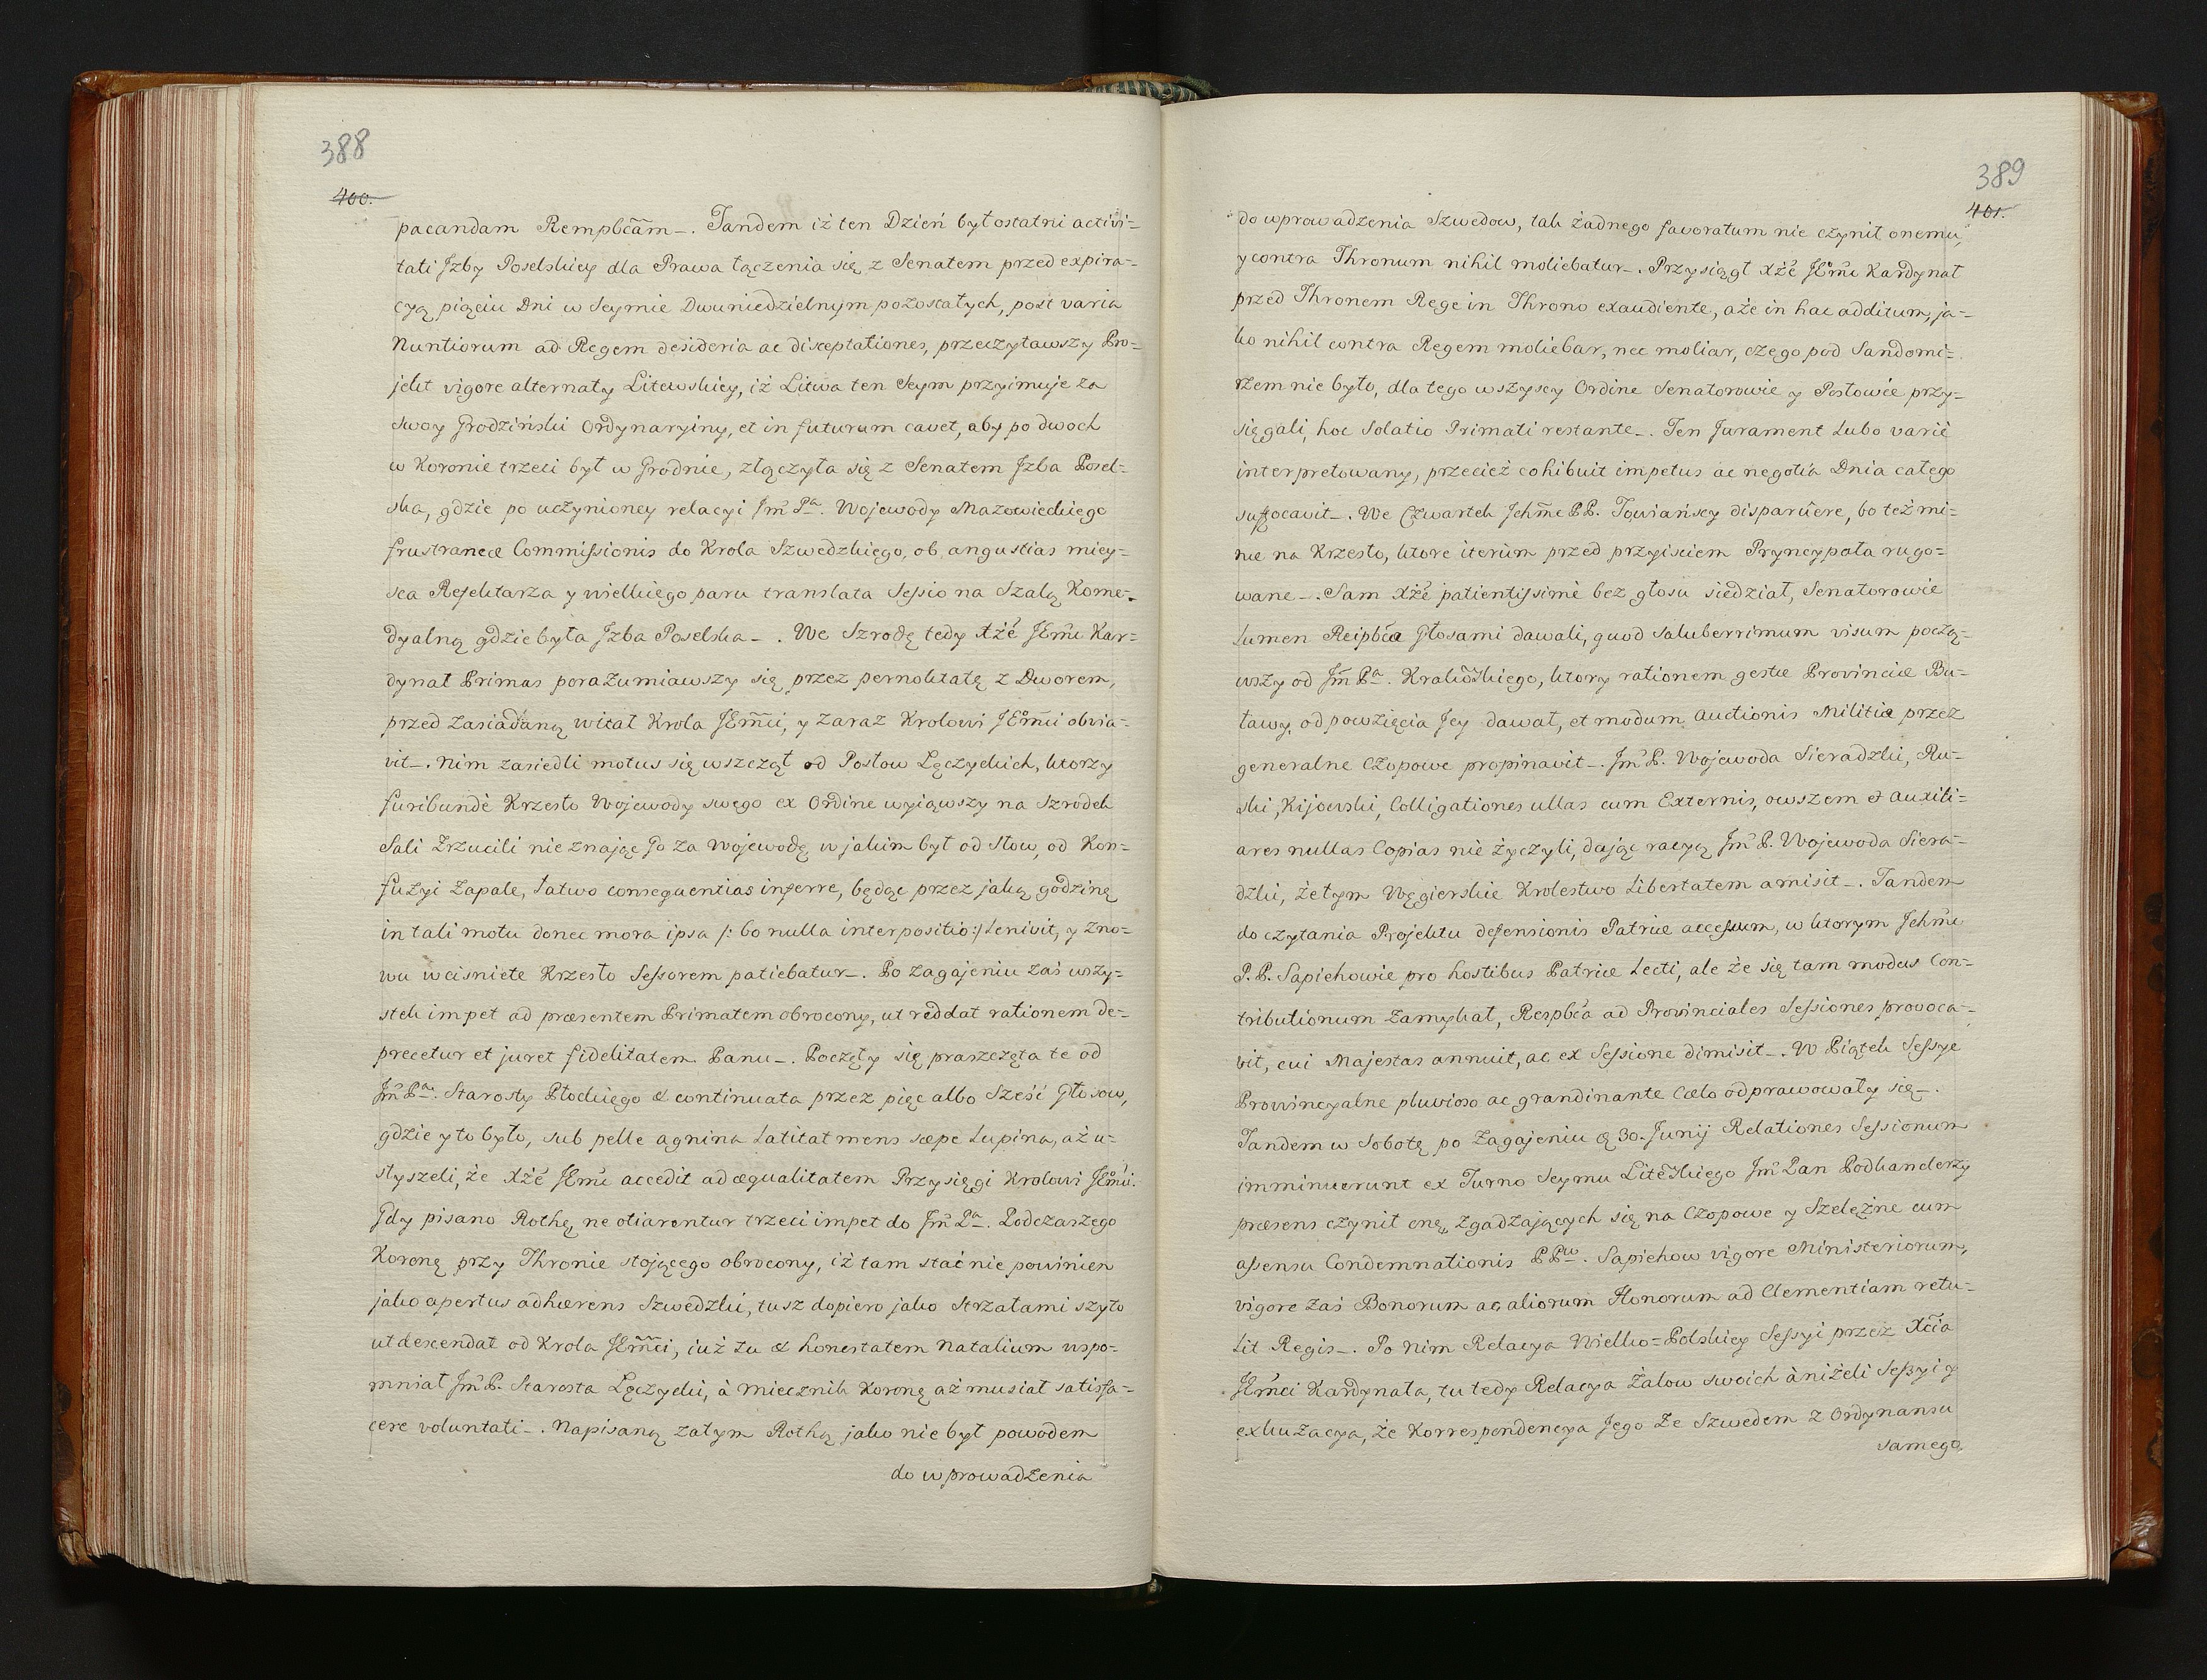 388
400.
pacandam Rempb̃cam_. Tandem iż ten Dzień był ostatni activi=
tati Jzby Poselskiey dla Prawa łączenia się z Senatem przed expira=
cyą pięciu Dni w Seymie Dwuniedzielnym pozostałych, post varia
Nuntiorum ad Regem desideria ac disceptationes, przeczytawszy Pro=
jekt vigore alternaty Litewskiey, iż Litwa ten Seym przyimuje za
swoy Grodziński Ordynaryiny, et in futurum cavet, aby po dwoch
w Koronie trzeci był w Grodnie, złączyła się z Senatem Jzba Posel=
ska, gdzie po uczynioney relacyi Jm̃ Pa. Wojewody Mazowieckiego
frustraneæ Commissionis do Krola Szwedzkiego, ob angustias miey=
sca Refektarza y wielkiego paru translata Sessio na Szalą Kome=
dyalną gdzie była Jzba Poselska_. We Szrodę tedy Xżé JEm̃c Kar=
dynał Primas porazumiawszy się przez pernoktatę z Dworem,
przed zasiadaną witał Krola JEm̃ci, y zaraz Krolowi JEm̃ci obvia=
vit_. Nim zasiedli motus się wszczął od Posłow Łęczyckich, ktorzy
furibundè Krzesło Wojewody swego ex Ordine wyiąwszy na szrodek
Sali zrzucili nie znając Go za Wojewodę w jakim był od Słow, od Kon=
fuzyi zapale, łatwo consequentias inferre, będąc przez jaką godzinę
in tali motu donec mora ipsa /: bo nulla interpositio :/ lenivit, y zno=
wu wcisniete Krzesło Sessorem patiebatur_. Po zagajeniu zaś wszy=
stek impet ad præsentem Primatem obrocony, ut reddat rationem de=
precetur et juret fidelitatem Panu_. Poczęły się praszczęta te od
Jm̃ Pa. Starosty Płockiego & continuata przez pięc albo Sześć Głosow,
gdzie y to było, sub pelle agnina latitat mens sæpe lupina, aż u=
słyszeli, że Xżé JEm̃c accedit ad æqualitatem Przysięgi Krolowi JEm̃ci.
Gdy pisano Rothę, ne otiarentur trzeci impet do Jm̃ Pa. Podczaszego
Koronę przy Thronie stojącego obrocony, iż tam stać nie powinien
jako apertus adhærens Szwedzki, tusz dopiero jako strzałami szyto
ut descendat od Krola JEm̃ci, iuż tu & honestatem Natalium wspo=
mniał Jm̃ P. Starosta Łęczycki, à Miecznik Koronę aż musiał satisfa=
cere voluntati_. Napisaną zatym Rothą jako nie był powodem
do wprowadzenia
389
401.
do wprowadzenia Szwedow, tak żadnego favoratum nie czynił onemu,
y contra Thronum nihil moliebatur_. Przysiągł Xżé JEm̃c Kardynał
przed Thronem Rege in Throno exaudiente, aże in hac additum, ja=
ko nihil contra Regem moliebar, nec moliar, czego pod Sandomi=
rzem nie było, dla tego wszyscy Ordine Senatorowie y Posłowie przy=
sięgali, hoc solatio Primati restante_. Ten Jurament lubo variè
interpretowany, przecież cohibuit impetus ac negotia Dnia całego
suffocavit_. We Czwartek Jchm̃c PP. Towiańscy disparûere, bo też mi=
nę na Krzesło, ktore iterùm przed przyisciem Pryncypała rugo=
wane_. Sam Xżé patientissimè bez głosu siedział, Senatorowie
lumen Reipb́ca Głosami dawali, quod saluberrimum visum począ=
wszy od Jm̃ Pa. Krako͠skiego, ktory rationem gestæ Provinciæ Bu=
ławy, od powzięcia Jey dawał, et modum auctionis Militiæ przez
generalne Czopowe propinavit_. Jm̃ P. Wojewoda Sieradzki, Ru=
ski, Kijowski, Colligationes ullas cum Externis, owszem & Auxili=
ares nullas Copias nie życzyli, dając racyą Jm̃ P. Wojewoda Siera=
dzki, że tym Węgierskie Krolestwo Libertatem amisit_. Tandem
do czytania Projektu defensionis Patriæ accessum, w ktorym Jchm̃c
P. P. Sapiehowie pro hostibus Patriæ lecti, ale że się tam modus Con=
tributionum zamykał, Respb́ca ad Provinciales Sessiones provoca=
vit, cui Majestas annuit, ac ex Sessione dimisit_. W Piątek Sessye
Prowincyalne pluvioso ac grandinante Cælo odprawowały się_.
Tandem w Sobotę po zagajeniu 30. Junij Relationes Sessionum
imminuerunt ex Turno Seymu Lite͠skiego Jm̃ Pan Podkanclerzy
præsens czynił onę, zgadzających się na Czopowe y Szelężne cum
assensu Condemnationis PPw. Sapiehow vigore Ministeriorum,
vigore zaś Bonorum ac aliorum Honorum ad Clementiam retu=
lit Regis_. Po nim Relacya Wielko=Polskiey Sessyi przez Xćia
JEm̃ci Kardynała, tu tedy Relacya żalow swoich àniżeli Sessyi y
exkuzacya, że Korrespondencya Jego ze Szwedem z Ordynansu
samego